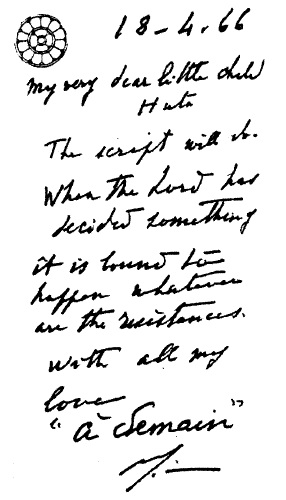 18-4.66
My very dear little child
Huta
The script will do.
When the Lord has
decided something
it is bound to
happen whatever
are the resistances.
With all my
love
"à demain"
M.